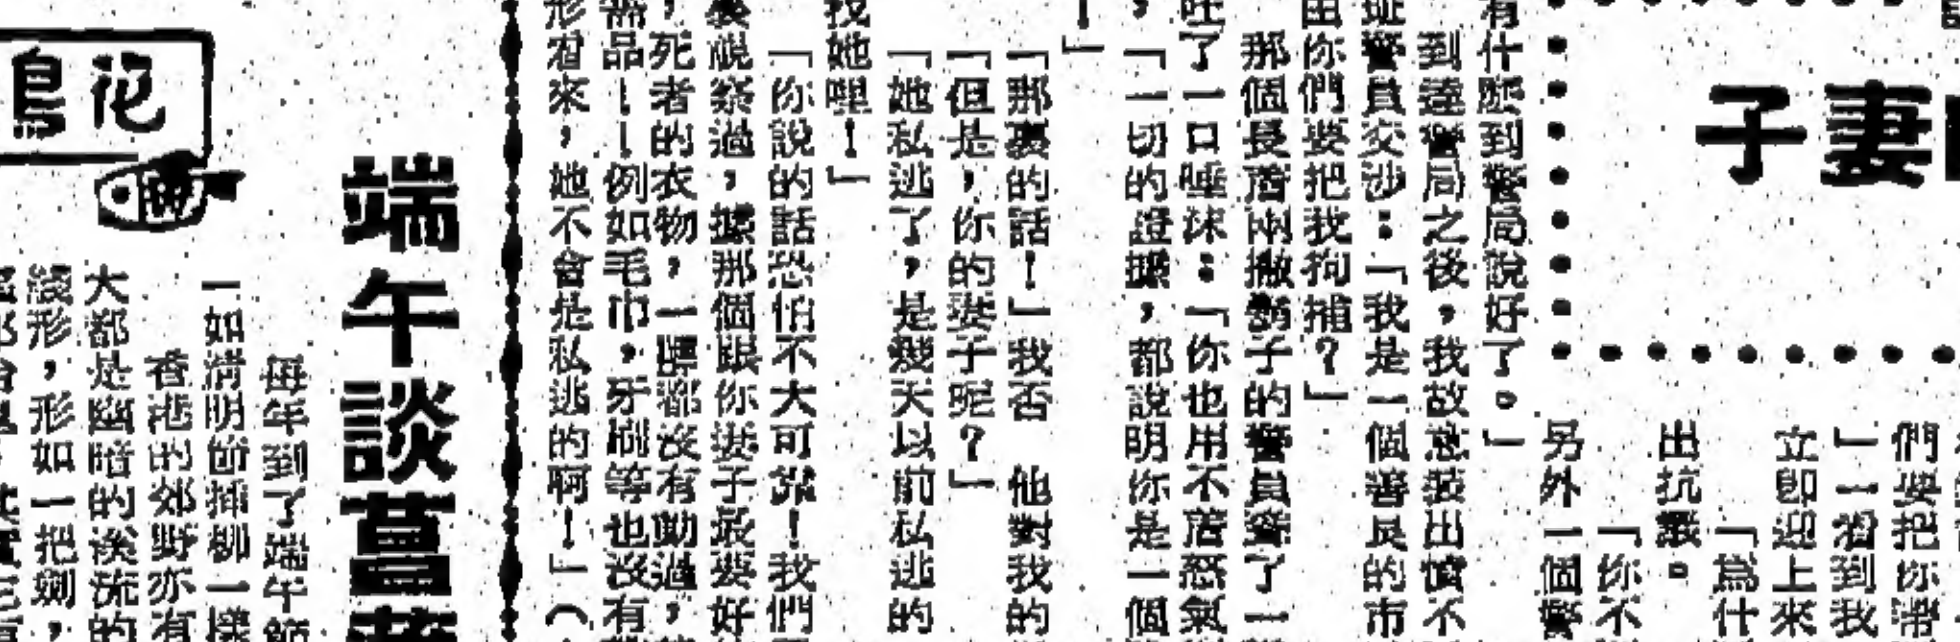 妻子
們要把你帶
」一看到我
立即迎上來
「為什
出抗議。
「你不
另外一個警
有什麽到警局說好了。」
到達警局之後，我故意裝出憤不
警員交涉：「我是一個善良的市
由你們要把我拘捕？」
那個長着兩撇鬍子的警員聳了一
了一口唾沫：「你也用不着怒氣
，「一切的證據，都說明你是一個
！」
「那裏的話！」我否 他對我的
「但是，你的妻子呢？」
「她私逃了，是幾天以前私逃的
找她哩！」
「你說的話恐怕不大可靠！我們
裏視察過，據那個跟你妻子最要好
，死者的衣物，一點都沒有動過，
需品——例如毛巾，牙刷等也沒有
形看來，她不會是私逃的啊！」（
端午談菖
每年到了端午節
一如清明節插柳一樣
香港的郊野亦有
大都是幽暗的溪流的
綫形，形如一把劍，
花鳥